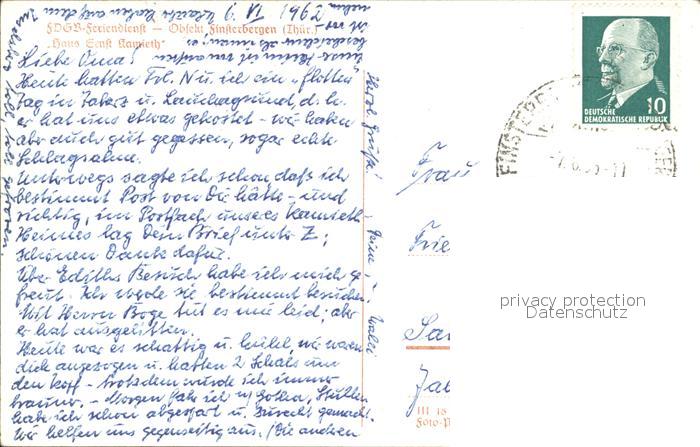 FDGB-Feriendienst — Objekt Finsterbergen (Thür.)
„Hans Ernst Kamieth"
Liebe Oma!
Heute hatten Frl. N u. ich ein „flotten"
Tag in Tabarz u. Lauchagrund, d. h.
er hat uns etwas gekostet – wir haben
aber auch gut gegessen, sogar echte
Schlagsahne.
Unterwegs sagte ich schon daß ich
bestimmt Post von Dir hätte – und
richtig, im Postfach unseres Kamieth
Heimes lag Dein Brief unter Z;
schönen Dank dafür.
Über Ediths Besuch habe ich mich ge
freut. Ich werde sie bestimmt besuchen.
Mit Herrn Boge tut es mir leid; aber
er hat ausgelitten.
Heute war es schattig u. kühl, wir waren
dick angezogen u. hatten 2 Schals um
den Kopf – trotzdem wurde ich immer
brauner. – Morgen fahr ich n/ Gotha, Stullen
habe ich schon abgespart u. zurecht gemacht.
Wir helfen uns gegenseitig aus. / Die anderen
Herzl. Grüße!
Deine
Frau
Frie
San
III 18
Foto-P
DEUTSCHE
DEMOKRATISCHE REPUBLIK
10
FINSTERBERGEN
privacy protection
Datenschutz